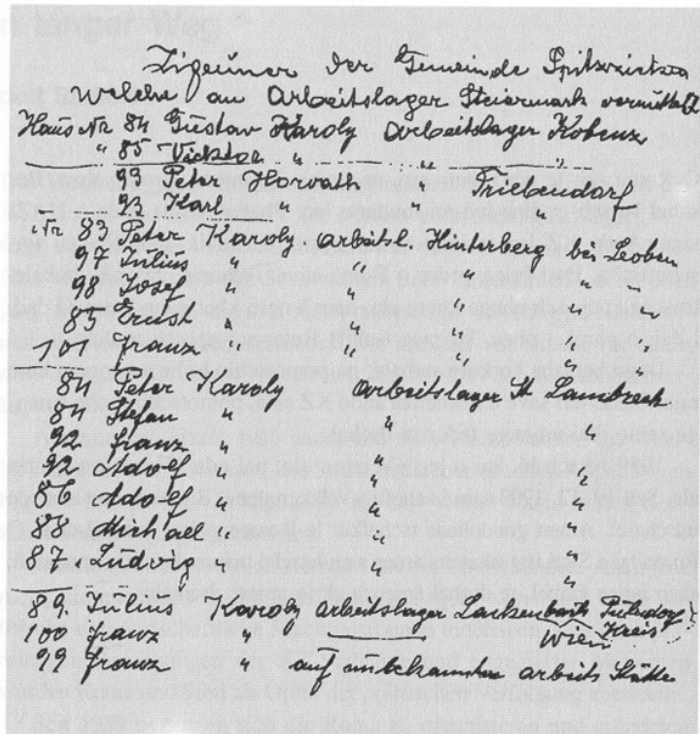 Zigeuner der Gemeinde Spitzzicken
welche an Arbeitslager Steiermark vermittelt
Haus Nr 84 Gustav Karoly Arbeitslager Kobenz
" 85 Vicktor " " "
93 Peter Horvath " Triebendorf
93 Karl " " "
Nr 83 Peter Karoly Arbeitsl. Hinterberg bei Leoben
97 Julius " " " " "
98 Josef " " " " "
85 Ernst " " " " "
101 Franz " " " " "
84 Peter Karoly Arbeitslager St Lambrech
84 Stefan " " "
92 Franz " " "
92 Adolf " " "
86 Adolf " " "
88 Michael " " "
87 Ludvig " " "
89. Julius Karoly Arbeitslager
100 Franz " Wien Kreis
99 Franz " auf unbekannten Arbeits Stätte